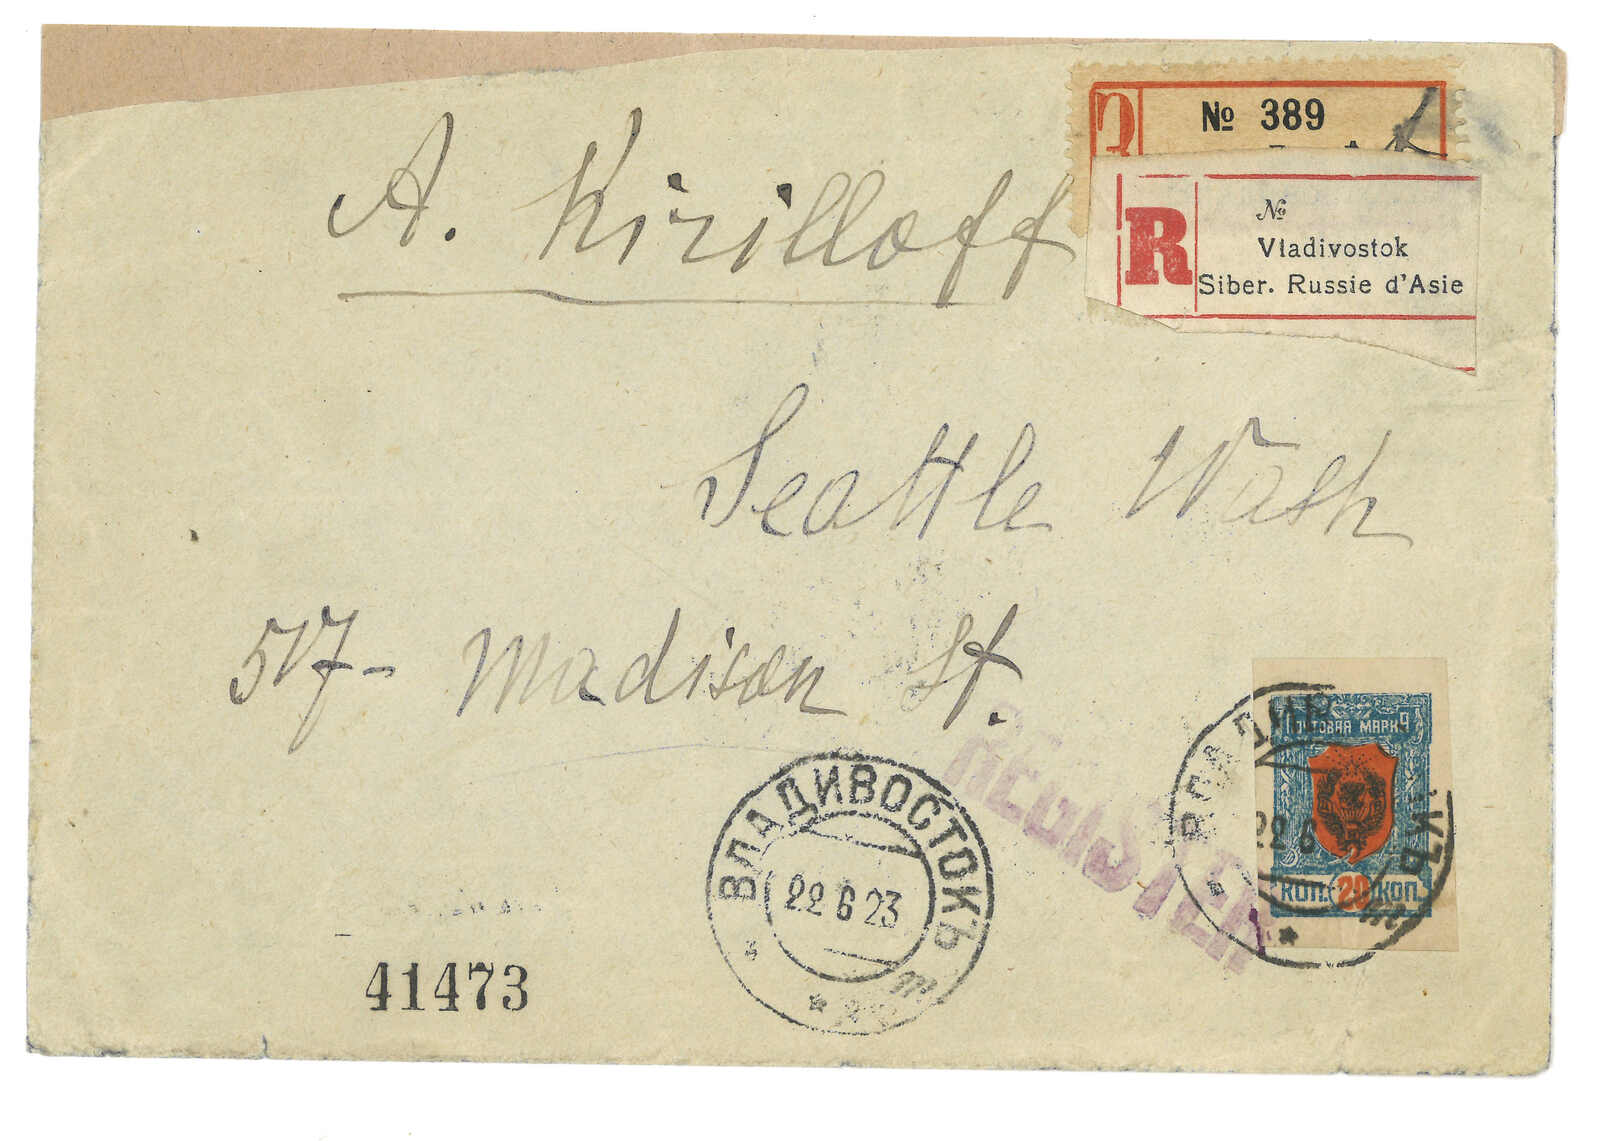 № 389
R
№
Vladivostok
Siber. Russie d'Asie
A. Kirilloff
Seattle Wash
517- Madison St.
REGISTER
ПОЧТОВАЯ МАРКА
КОП. 20 КОП.
ВЛАДИВОСТОКЪ
22 6
ВЛАДИВОСТОКЪ
22 6 23
41473